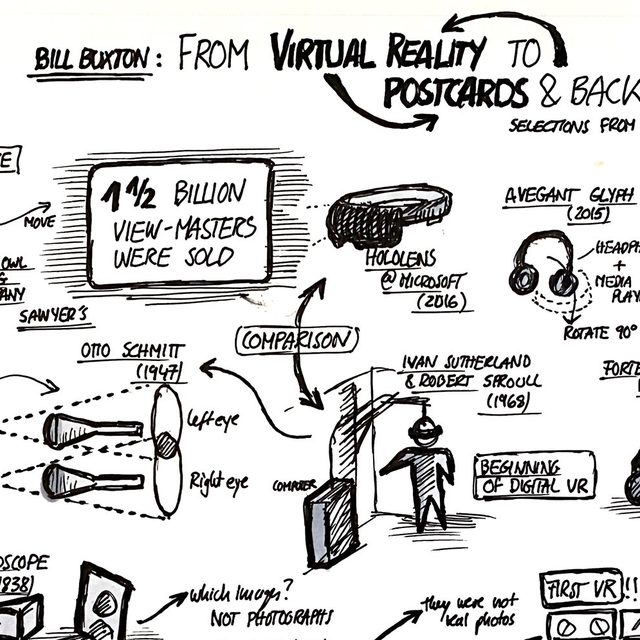 BILL BUXTON: FROM VIRTUAL REALITY TO
POSTCARDS & BACK
SELECTIONS FROM
MOVE
SAWYER'S
1 1/2 BILLION
VIEW-MASTERS
WERE SOLD
HOLOLENS
@ MICROSOFT
(2016)
AVEGANT GLYPH
(2015)
+
MEDIA
ROTATE 90°
COMPARISON
OTTO SCHMITT
(1947)
Left eye
Right eye
IVAN SUTHERLAND
& ROBERT SPROULL
(1968)
COMPUTER
BEGINNING
OF DIGITAL VR
which Images?
NOT PHOTOGRAPHS
they were not
real photos
FIRST VR!!